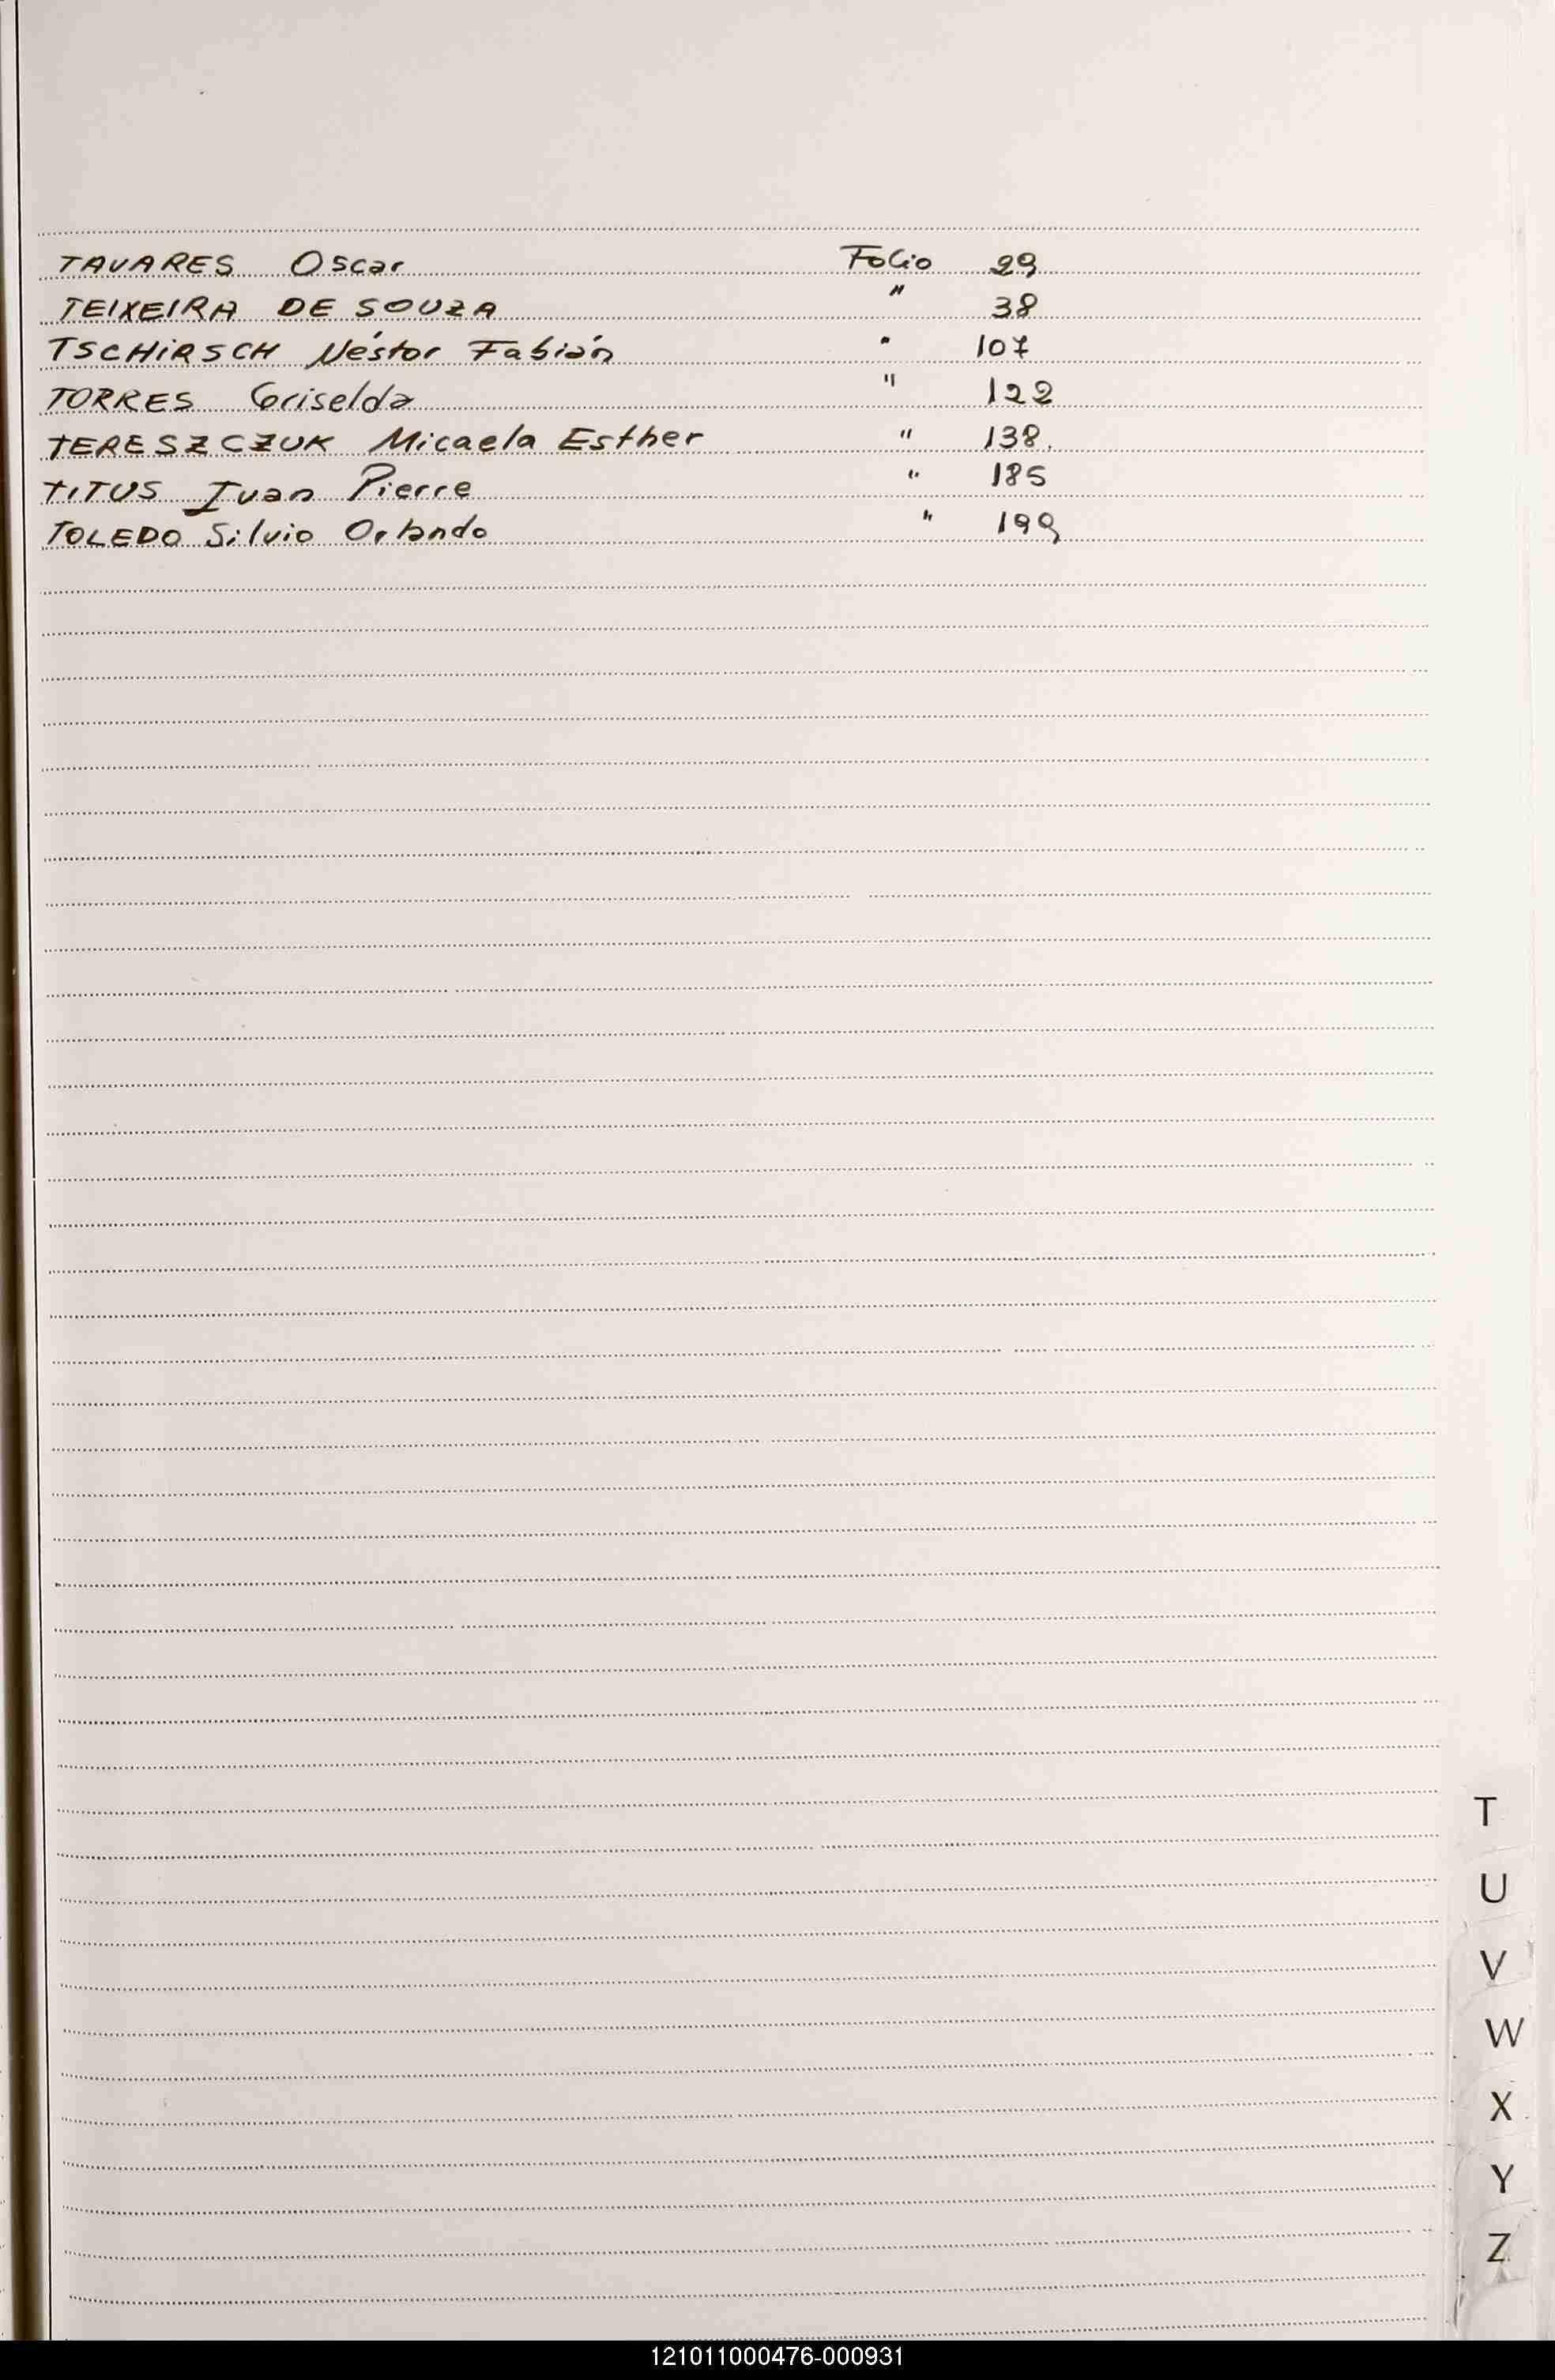 TAVARES Oscar Folio 29
TEIXEIRA DE SOUZA " 38
TSCHiRSCH Néstor Fabián " 107
TORRES Griselda " 122
TERESZCZUK Micaela Esther " 138.
TITUS Ivan Pierre " 185
TOLEDO Silvio Orlando " 199
T
U
V
W
X
Y
Z
121011000476-000931